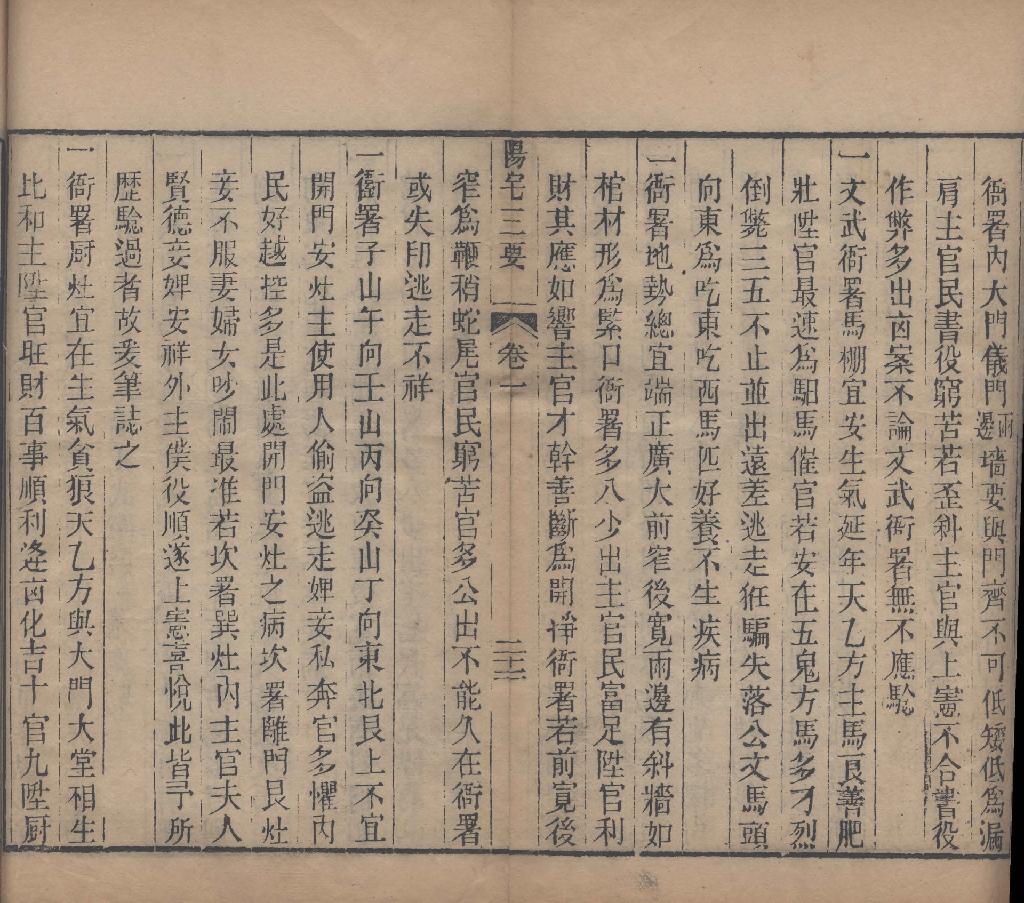 衙署內大門儀門兩邊墻要與門齊不可低矮低為漏
肩主官民書役窮苦若歪斜主官與上憲不合書役
作獘多出卤案不論文武衙署無不應驗
一文武衙署馬棚宜安生氣延年天乙方主馬良善肥
壯陞官最速為馹馬催官若安在五鬼方馬多刁烈
倒斃三五不止並出遠差逃走誑騙失落公文馬頭
向東為吃東吃西馬匹好養不生疾病
一衙署地勢總宜端正廣大前窄後寬兩邊有斜牆如
棺材形為緊口衙署多入少出主官民富足陞官利
財其應如響主官才幹善斷為開 衙署若前寬後
陽宅三要 卷一 二十三
窄為鞭稍蛇尾官民窮苦官多公出不能久在衙署
或失印逃走不祥
一衙署子山午向壬山丙向癸山丁向東北艮上不宜
開門安灶主使用人偷盜逃走婢妾私奔官多懼內
民好越控多是此處開門安灶之病坎署離門艮灶
妾不服妻婦女吵鬧最准若坎署巽灶內主官夫人
賢德妾婢安祥外主僕役順遂上憲喜悅此皆予所
歷驗過者故爰筆誌之
一衙署厨灶宜在生氣貪狼天乙方與大門大堂相生
比和主陞官旺財百事順利逢卤化吉十官九陞厨